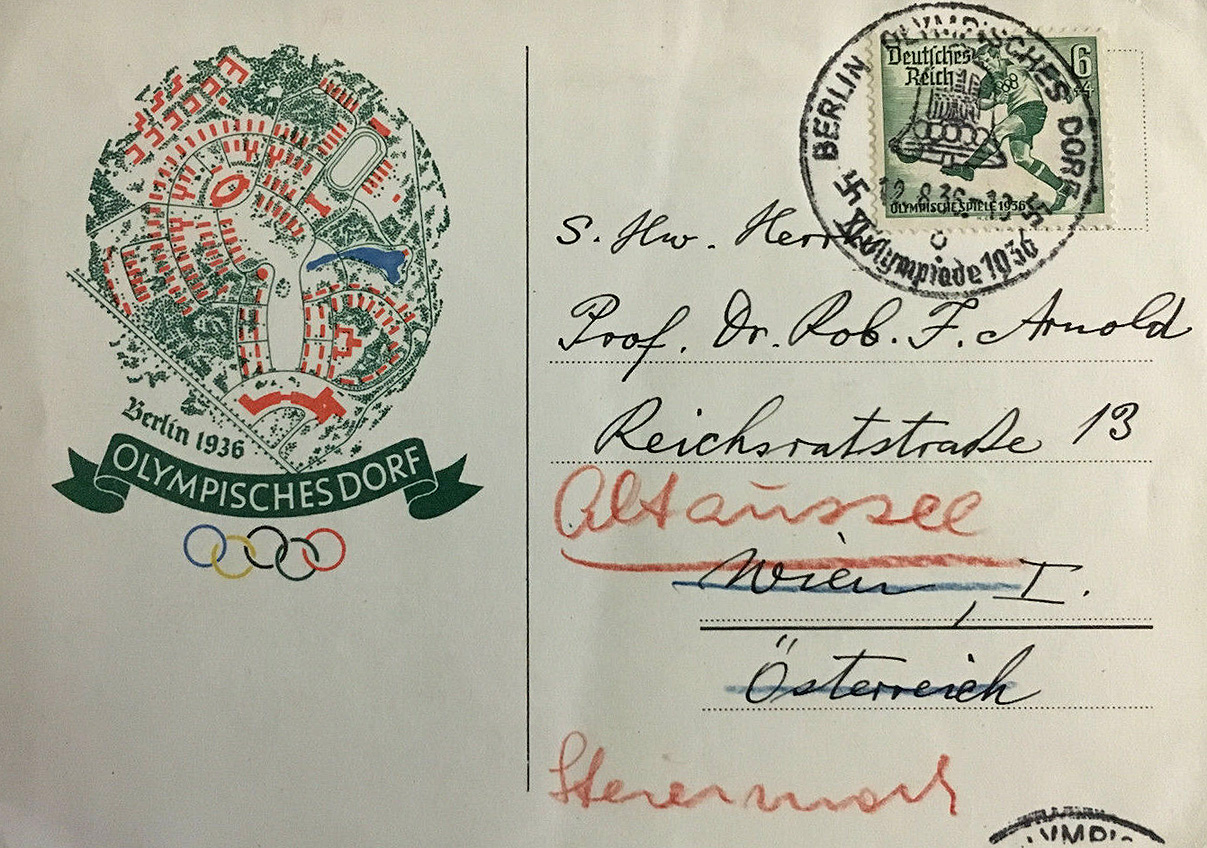 Berlin 1936
OLYMPISCHES DORF
BERLIN OLYMPISCHES DORF
XI. Olympiade 1936
Deutsches
Reich
6
+4
OLYMPISCHE SPIELE 1936
S. Hw. Herrn
Prof. Dr. Rob. F. Arnold
Reichsratstraße 13
Altaussee
Wien, I.
Österreich
Steiermark